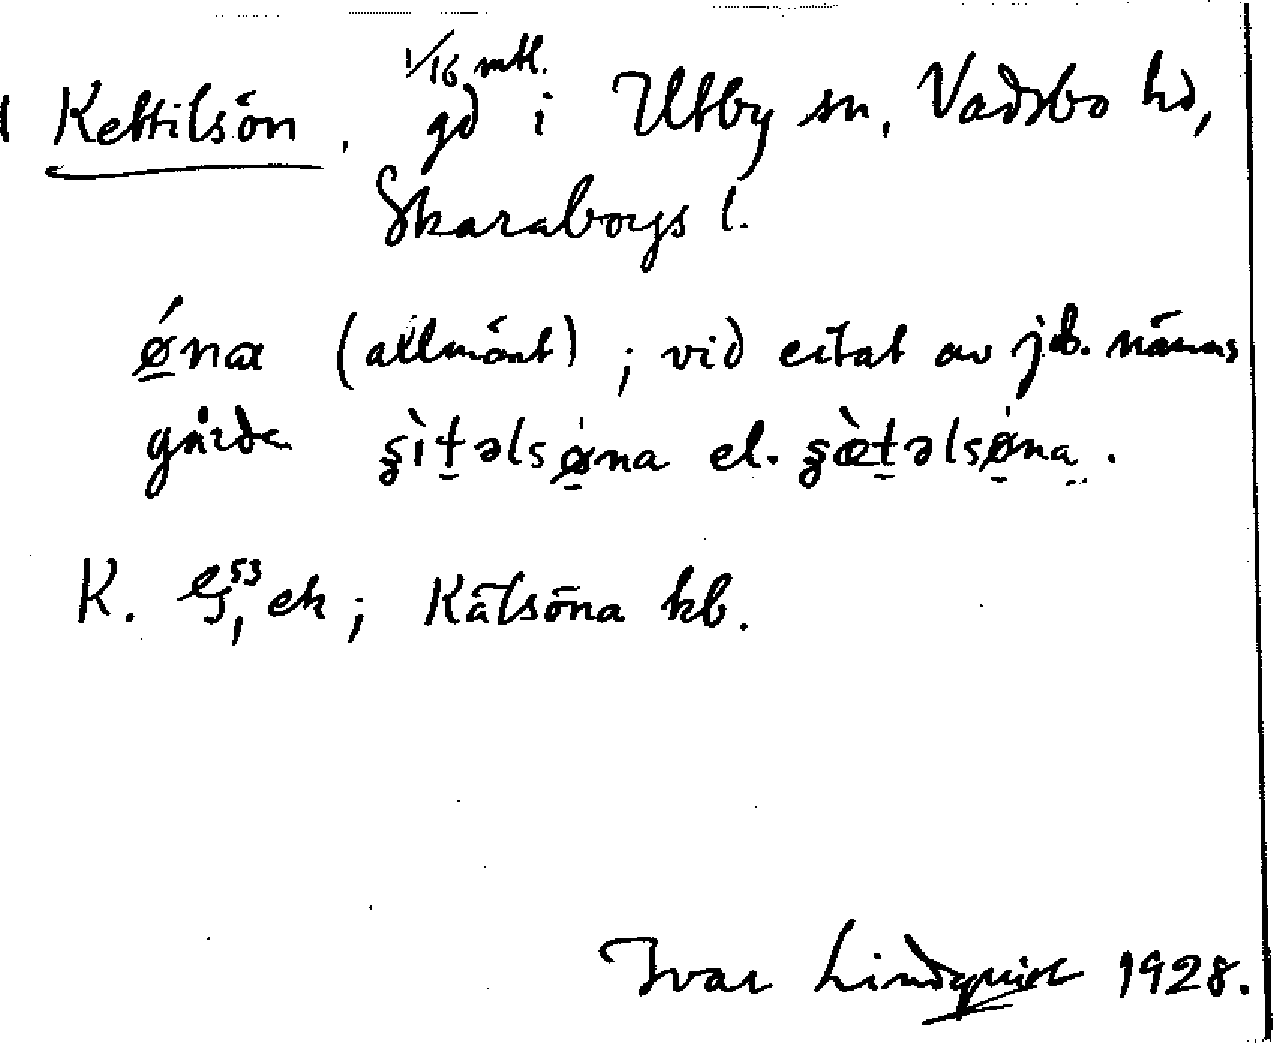 Kettilsön, 1/16 mtl. gd i Utby sn, Vadsbo hd,
Skaraborgs l.
ǿna (allmänt); vid citat av jb. nämns
gården ʂìtəlsǿna el. ʂæ̀təlsǿna.
K. 53, ek; Kätsöna kb.
Ivar Lindquist 1928.